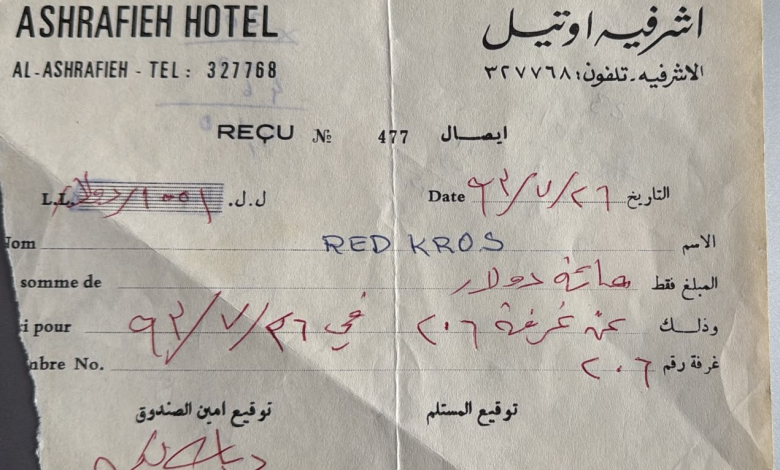 ASHRAFIEH HOTEL اشرفيه اوتيل
AL-ASHRAFIEH - TEL: 327768 الاشرفيه ـ تلفون: ٣٢٧٧٦٨
REÇU № 477 ايصال
L.L. /١٠٠/ دولار ل.ل.
Date ٩٣/٧/٢٦ التاريخ
Nom RED KROS الاسم
somme de مائة دولار المبلغ فقط
i pour عن غرفة ٢٠٦ في ٩٣/٧/٢٦ وذلك
mbre No. ٢٠٦ غرفة رقم
توقيع امين الصندوق توقيع المستلم